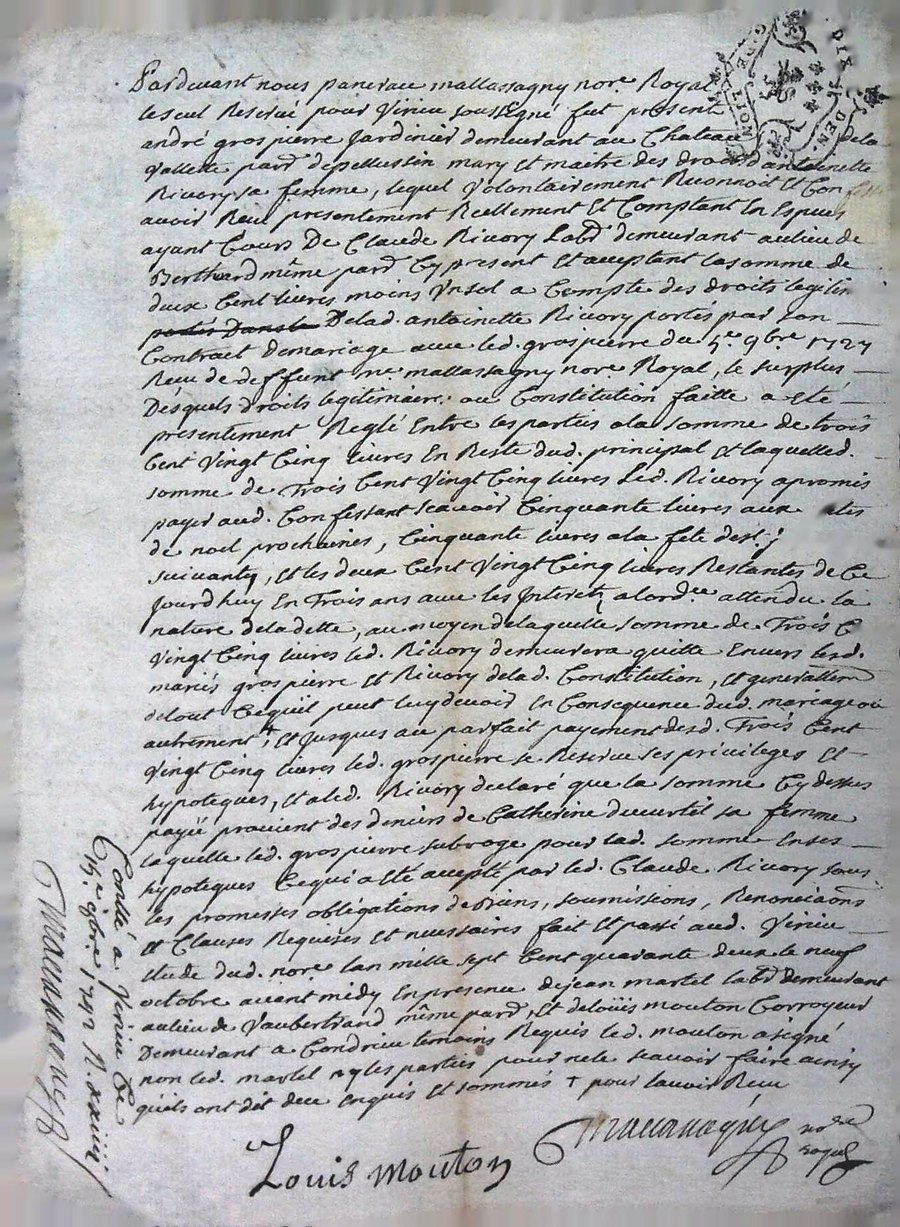 Pardevant nous pancrau mallassagny nore. Royal
le seul Reservé pour Virieu soussigné fut present
andré grospierre Jardinier demeurant au Chateau dela
Vallette pard. depellussin mary et maitre des droits d'antoinette
Rivory sa femme, lequel Volontairement Reconnoit et Con
avoir Receu presentement Reellement et Comptant En Especes
ayant Cours De Claude Rivory Labr. demeurant aulieu de
Berthard même pard. Cy present et acceptant la somme de
deux Cent livres moins Un sol a Compte des droits legitim
portés Dans le Delad. antoinette Rivory portés par son
Contract demariage avec led. grospierre du 5e. 9bre. 1727
Receu de deffunt me mallassagny nore. Royal, le surplus
Desquels droits legitimaires ou Constitution faitte a eté
presentement Reglé Entre les parties ala somme de trois
Cent Vingt Cinq livres En Reste dud. principal et laquelled.
somme de Trois Cent Vingt Cinq livres Led. Rivory a promis
payer aud. Confessant scavoir Cinquante livres aux
de noel prochaines, Cinquante livres ala fete de st. j
suivantes, et les deux Cent Vingt Cinq livres Restantes de Ce
Jourdhuy En Trois ans avec les Interets alordre. attendu la
nature deladette, au moyen delaquelle somme de Trois C
Vingt Cinq livres led. Rivory demeurera quitte Envers lesd.
mariés grospierre et Rivory delad. Constitution, et generallem
detout Cequil peut luy devoir En Consequence dud. mariage ou
autrement, et Jusques au parfait payement desd. Trois Cent
Vingt Cinq livres led. grospierre se Reserve ses privileges et
hypoteques, et aled. Rivory declaré que la somme Cy dessus
payée provient des deniers de Catherine ducurtil sa femme
laquelle led. grospierre subroge pour lad. somme Enses
hypoteques Cequi a eté accepté par led. Claude Rivory sous
les promesses obligations de biens, soumissions, Renonciaons
et Clauses Requises et necessaires fait et passé aud. Virieu
etude dud. nore lan mille sept Cent quarante deux le neuf
octobre avant midy En presence de jean martel labr. demeurant
aulieu de Vaubertrand même pard. et deloüis mouton Corroyeur
Demeurant a Condrieu temoins Requis led. mouton a signé
non led. martel ny les parties pour ne le scavoir faire ainsy
quils ont dit dece enquis et sommés + pour lavoir Receu
Louis mouton
Mallassagny nore
royal
Conllé a Virieu Ce
8bre 1742
Mallassagny
GDE
LION
DIX
DEN.